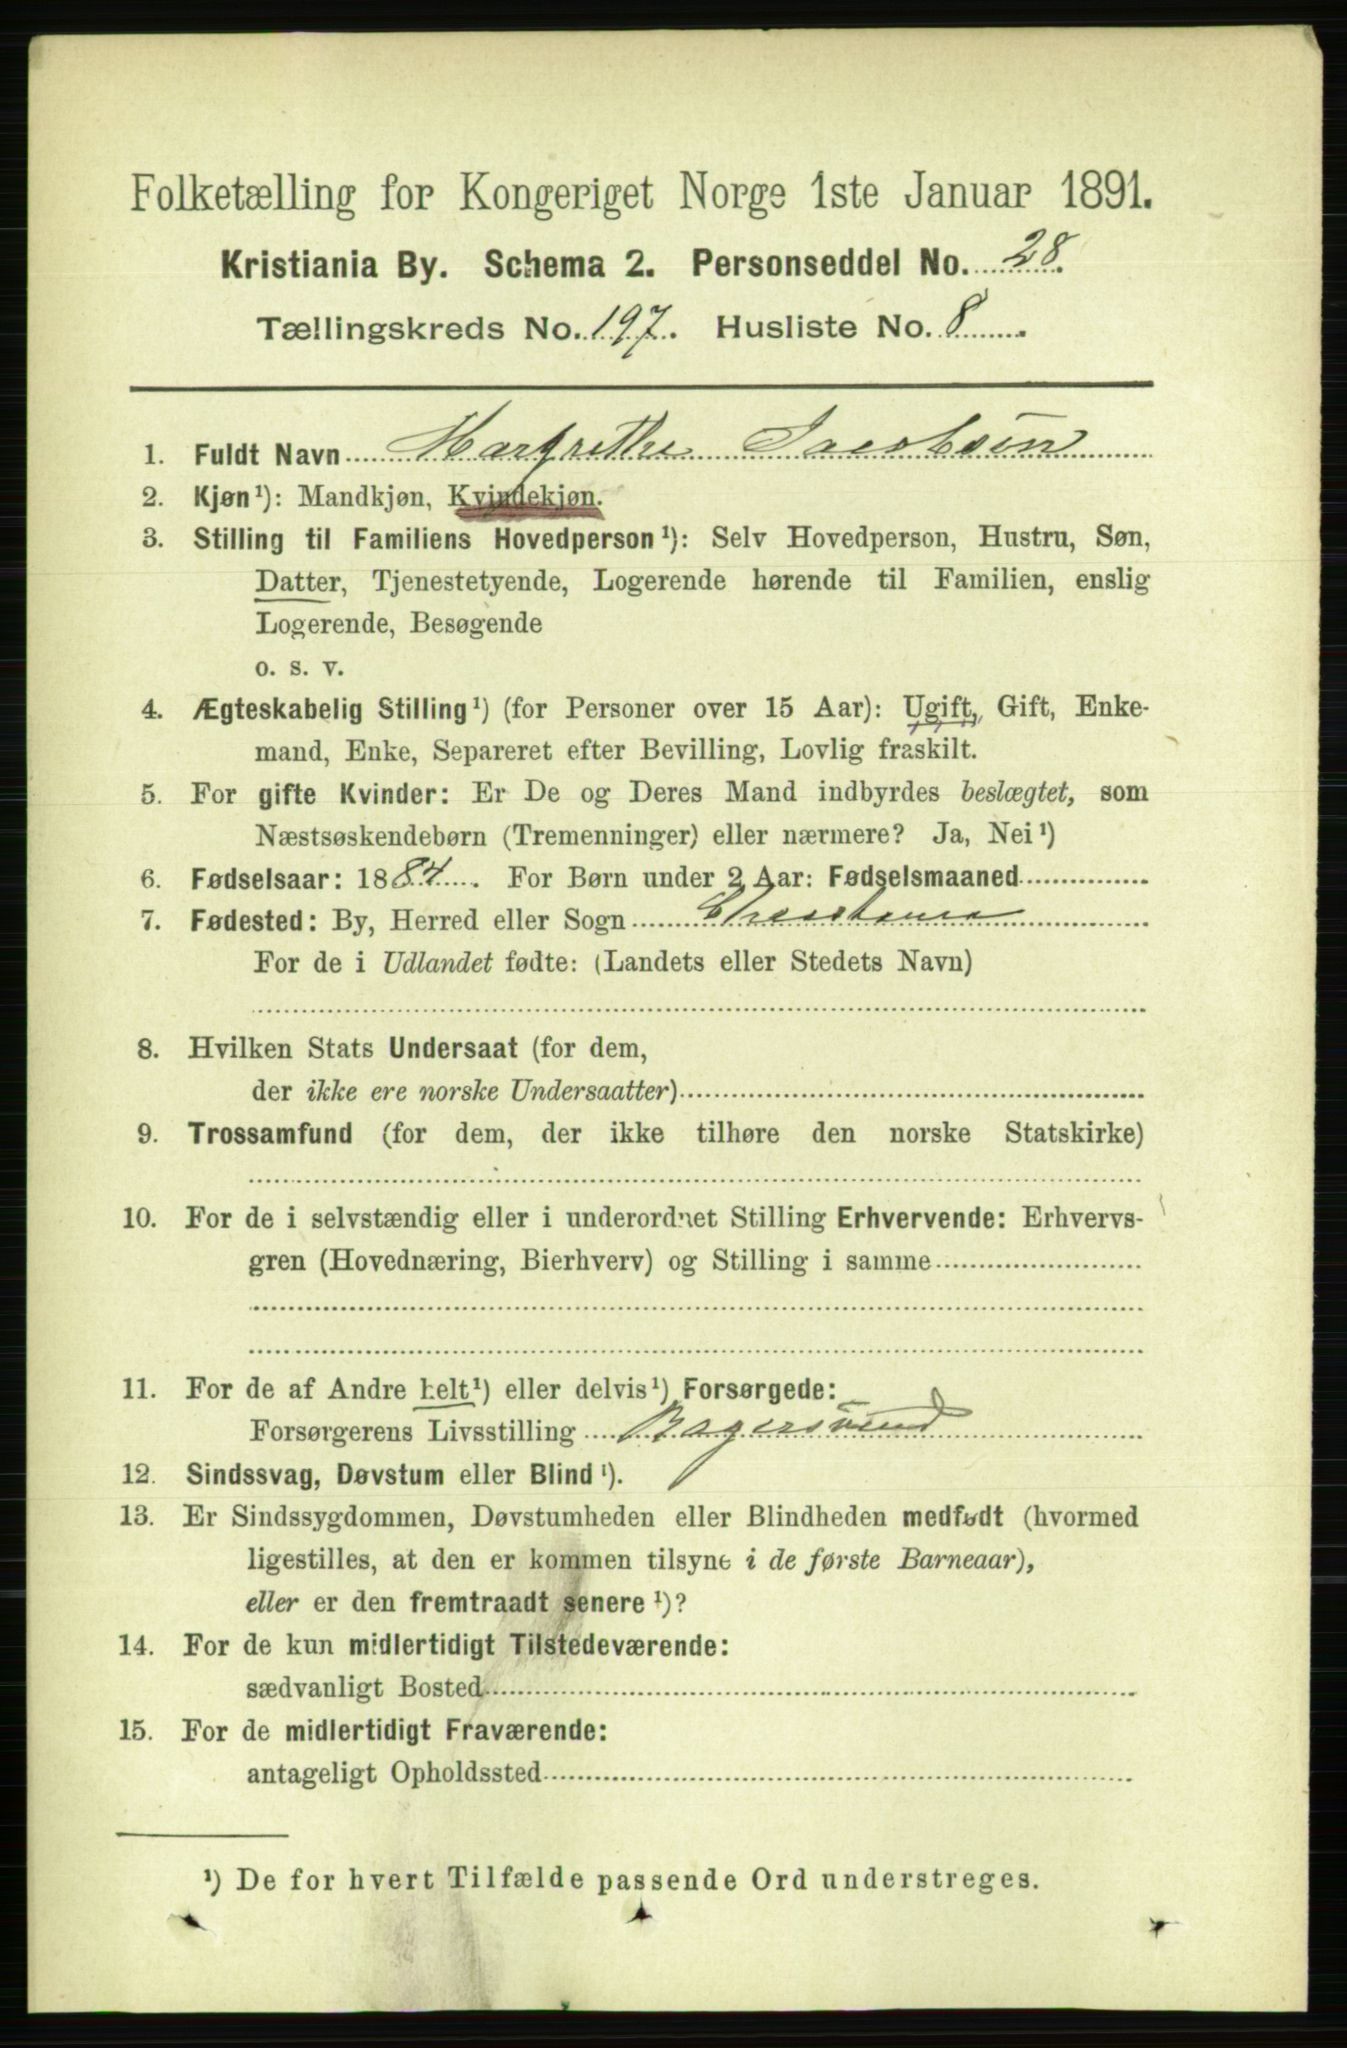 Folketælling for Kongeriget Norge 1ste Januar 1891.
Kristiania By. Schema 2. Personseddel No. 28.
Tællingskreds No. 197. Husliste No. 8
1. Fuldt Navn Margrethe Jacobsen
2. Kjøn¹): Mandkjøn, Kvindekjøn.
3. Stilling til Familiens Hovedperson¹): Selv Hovedperson, Hustru, Søn,
Datter, Tjenestetyende, Logerende hørende til Familien, enslig
Logerende, Besøgende
o. s. v.
4. Ægteskabelig Stilling¹) (for Personer over 15 Aar): Ugift, Gift, Enke-
mand, Enke, Separeret efter Bevilling, Lovlig fraskilt.
5. For gifte Kvinder: Er De og Deres Mand indbyrdes beslægtet, som
Næstsøskendebørn (Tremenninger) eller nærmere? Ja, Nei¹)
6. Fødselsaar: 1884. For Børn under 2 Aar: Fødselsmaaned
7. Fødested: By, Herred eller Sogn Christiania
For de i Udlandet fødte: (Landets eller Stedets Navn)
8. Hvilken Stats Undersaat (for dem,
der ikke ere norske Undersaatter)
9. Trossamfund (for dem, der ikke tilhøre den norske Statskirke)
10. For de i selvstændig eller i underordnet Stilling Erhvervende: Erhvervs-
gren (Hovednæring, Bierhverv) og Stilling i samme
11. For de af Andre helt¹) eller delvis¹) Forsørgede:
Forsørgerens Livsstilling Bagersvend
12. Sindssvag, Døvstum eller Blind¹).
13. Er Sindssygdommen, Døvstumheden eller Blindheden medfødt (hvormed
ligestilles, at den er kommen tilsyne i de første Barneaar),
eller er den fremtraadt senere¹)?
14. For de kun midlertidigt Tilstedeværende:
sædvanligt Bosted
15. For de midlertidigt Fraværende:
antageligt Opholdssted
¹) De for hvert Tilfælde passende Ord understreges.